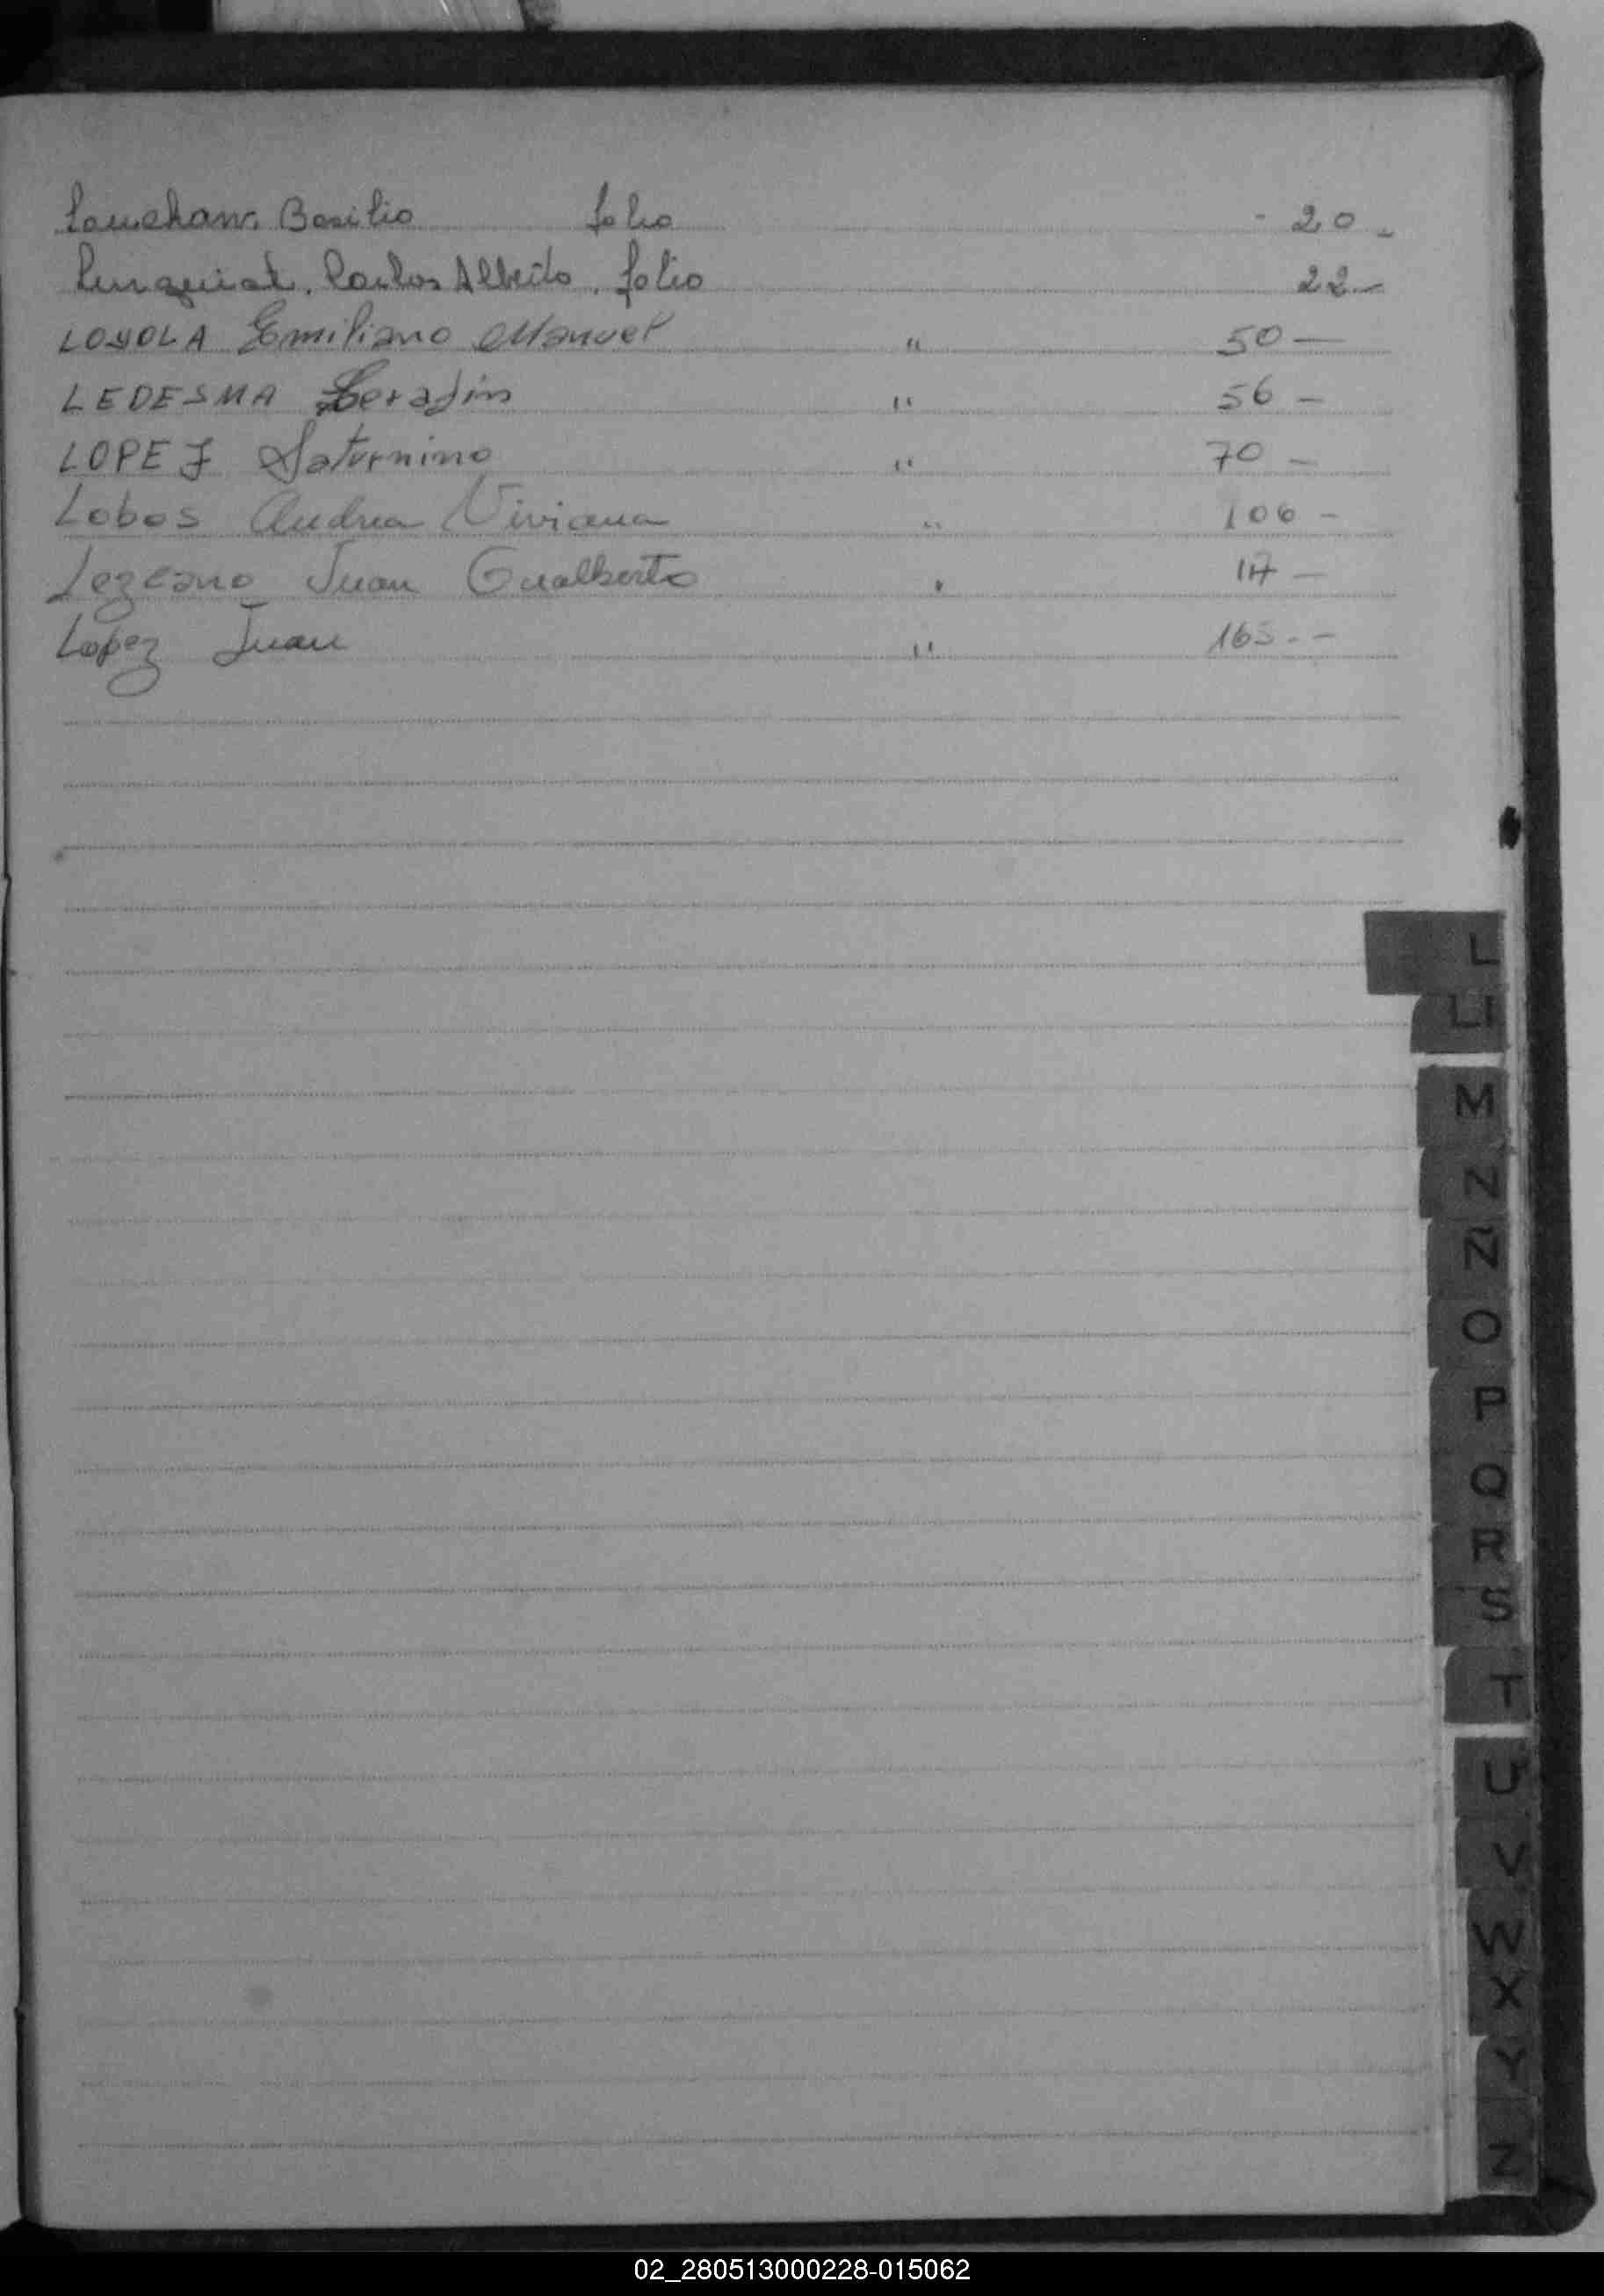 Basilio folio - 20 -
Carlos Alberto. folio 22 -
LOYOLA Emiliano Manuel " 50 -
LEDESMA Serafin " 56 -
LOPEZ Saturnino " 70 -
Lobos Andrea Viviana " 106 -
Lezcano Juan Gualberto "
Lopez Juan " 165 - -
L
Ll
M
N
Ñ
O
P
Q
R
S
T
U
V
W
X
Y
Z
02_280513000228-015062